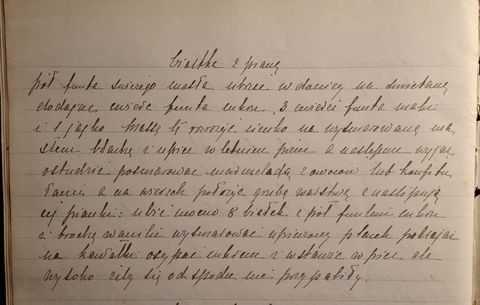 Ciastka z pianą
pół funta świeżego masła utrzeć w donicy na śmietanę
dodając ćwierć funta cukru, 3 ćwierci funta mąki
i 1 jajko masę tę rozłożyć cienko na wysmarowaną ma
słem blachę i upiec w letnim piecu a następnie wyjąć
ostudzić posmarować marmeladą z owoców lub konfitu
rami a na wierzch położyć grubą warstwę z następują
cej pianki: ubić mocno 8 białek z pół funtem cukru
i trochę wanilii wysmarować upieczony placek pokrajać
na kawałki osypać cukrem i wstawić w piec ale
wysoko żeby się od spodu nie przypaliły.